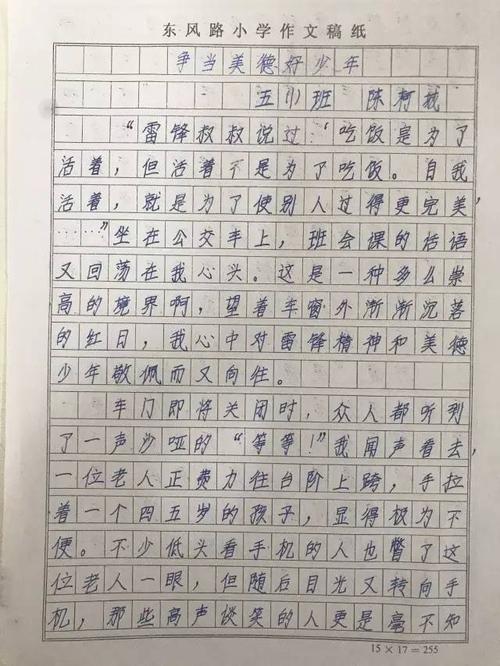 东风路小学作文稿纸
争当美德好少年
五(1)班 陈柯
“雷锋叔叔说过：‘吃饭是为了
活着，但活着不是为了吃饭。自我
活着，就是为了使别人过得更完美，
……”坐在公交车上，班会课的话语
又回荡在我心头。这是一种多么崇
高的境界啊，望着车窗外渐渐沉落
的红日，我心中对雷锋精神和美德
少年敬佩而又向往。
车门即将关闭时，众人都听到
了一声沙哑的“等等！”我闻声看去，
一位老人正费力往台阶上跨，手拉
着一个四五岁的孩子，显得极为不
便。不少低头看手机的人也瞥了这
位老人一眼，但随后目光又转向手
机，那些高声谈笑的人更是毫不知
15×17=255